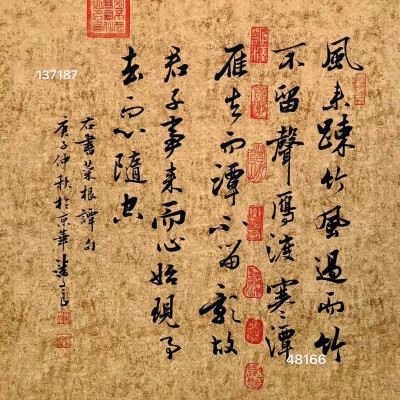 風来踈竹風過而竹
不留聲鴈渡寒潭
雁去而潭不留影故
君子事来而心始現事
去而心隨空
右書菜根譚句
庚子仲秋於京華
137187
48166